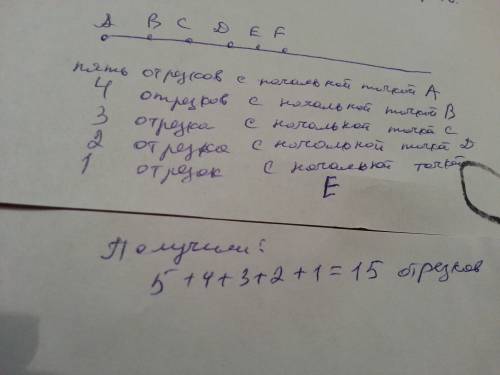 A B C D E F
пять отрезков с начальной точкой A
4 отрезков с начальной точкой B
3 отрезка с начальной точкой C
2 отрезка с начальной точкой D
1 отрезок с начальной точкой
E
Получили:
5+4+3+2+1=15 отрезков